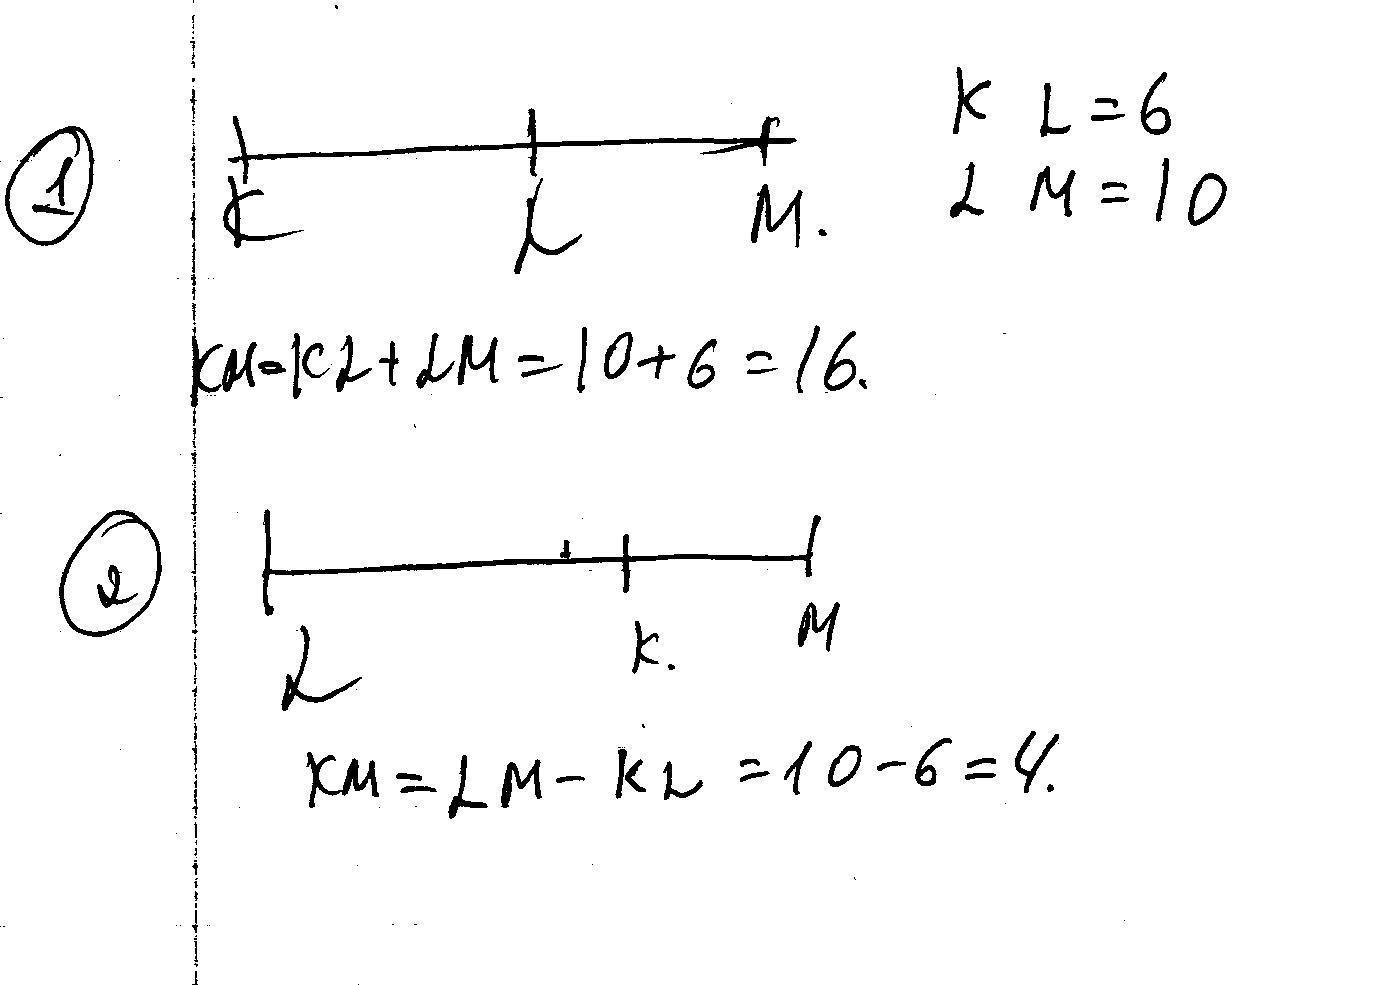 K L = 6
L M = 10
1
K L M.
KM = KL + LM = 10 + 6 = 16.
2
L K. M
KM = LM - KL = 10 - 6 = 4.